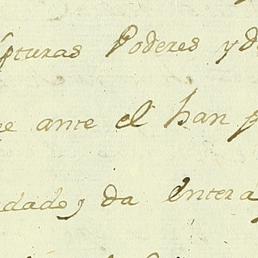 pturas Poderes yd
e ante el han p
dado, y da entera